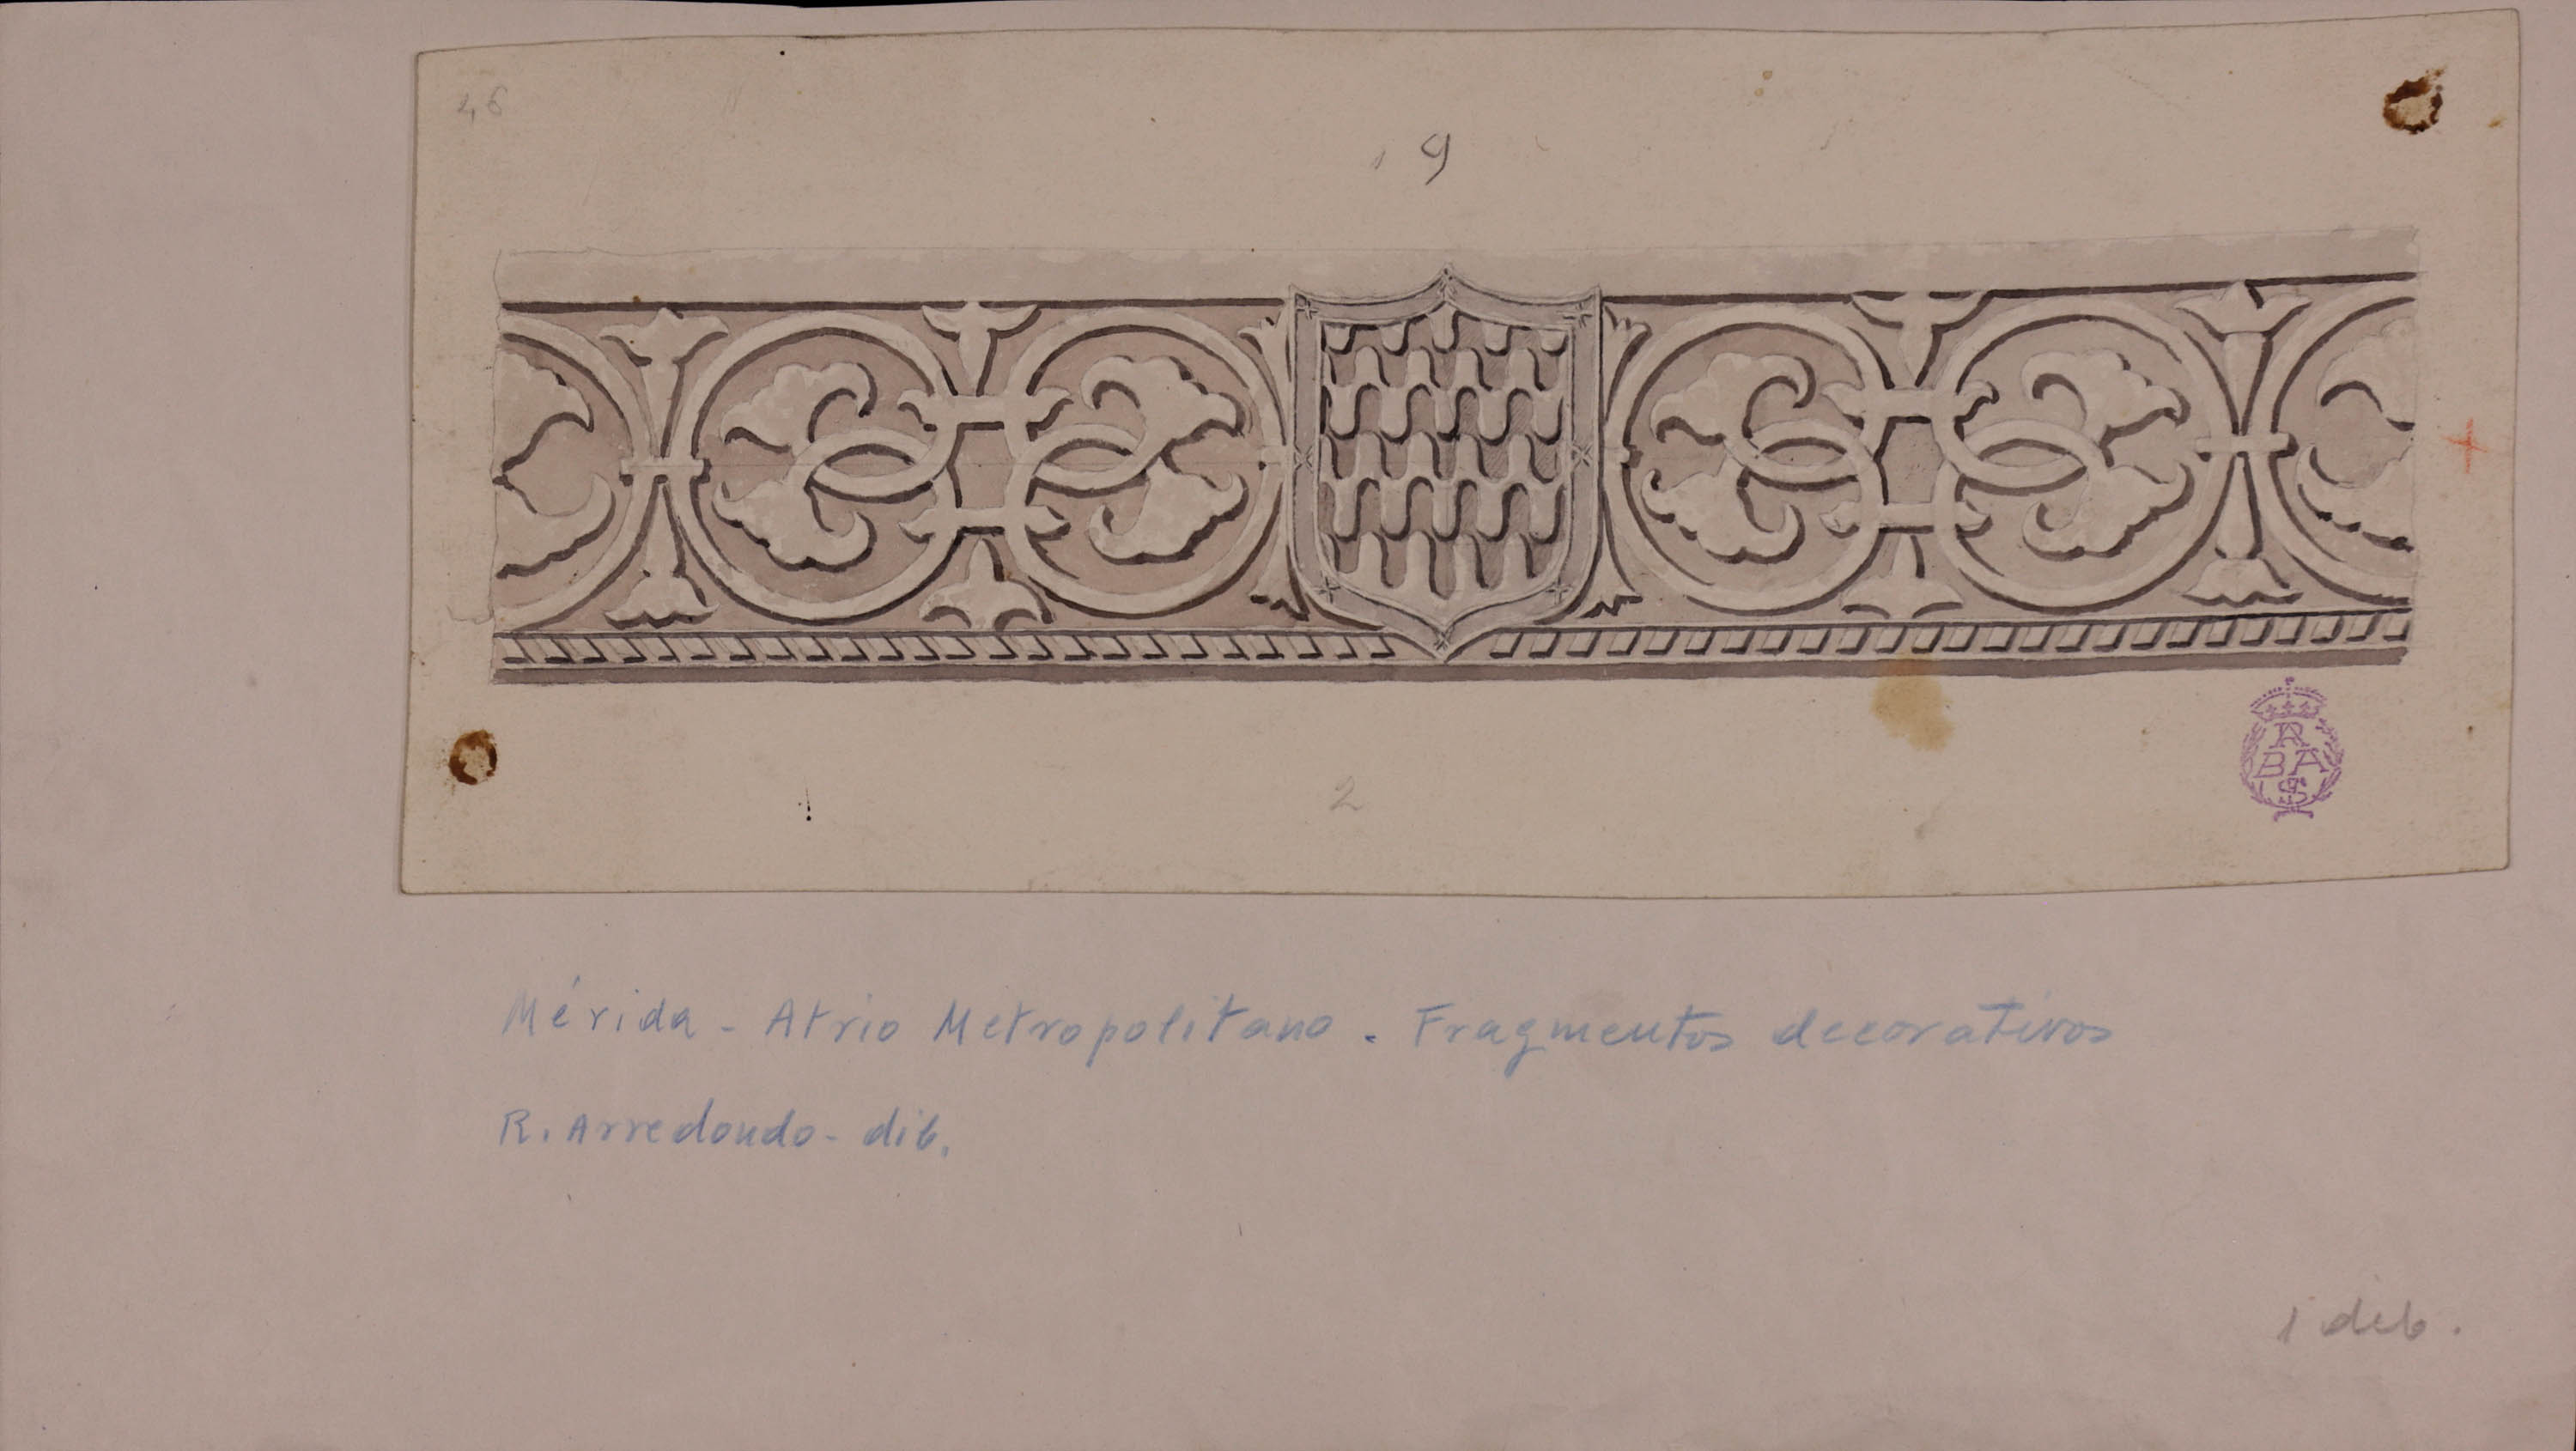 46
9
2
R
BA
S
Mérida - Atrio Metropolitano. Fragmentos decorativos
R. Arredondo - dib.
1 dib.